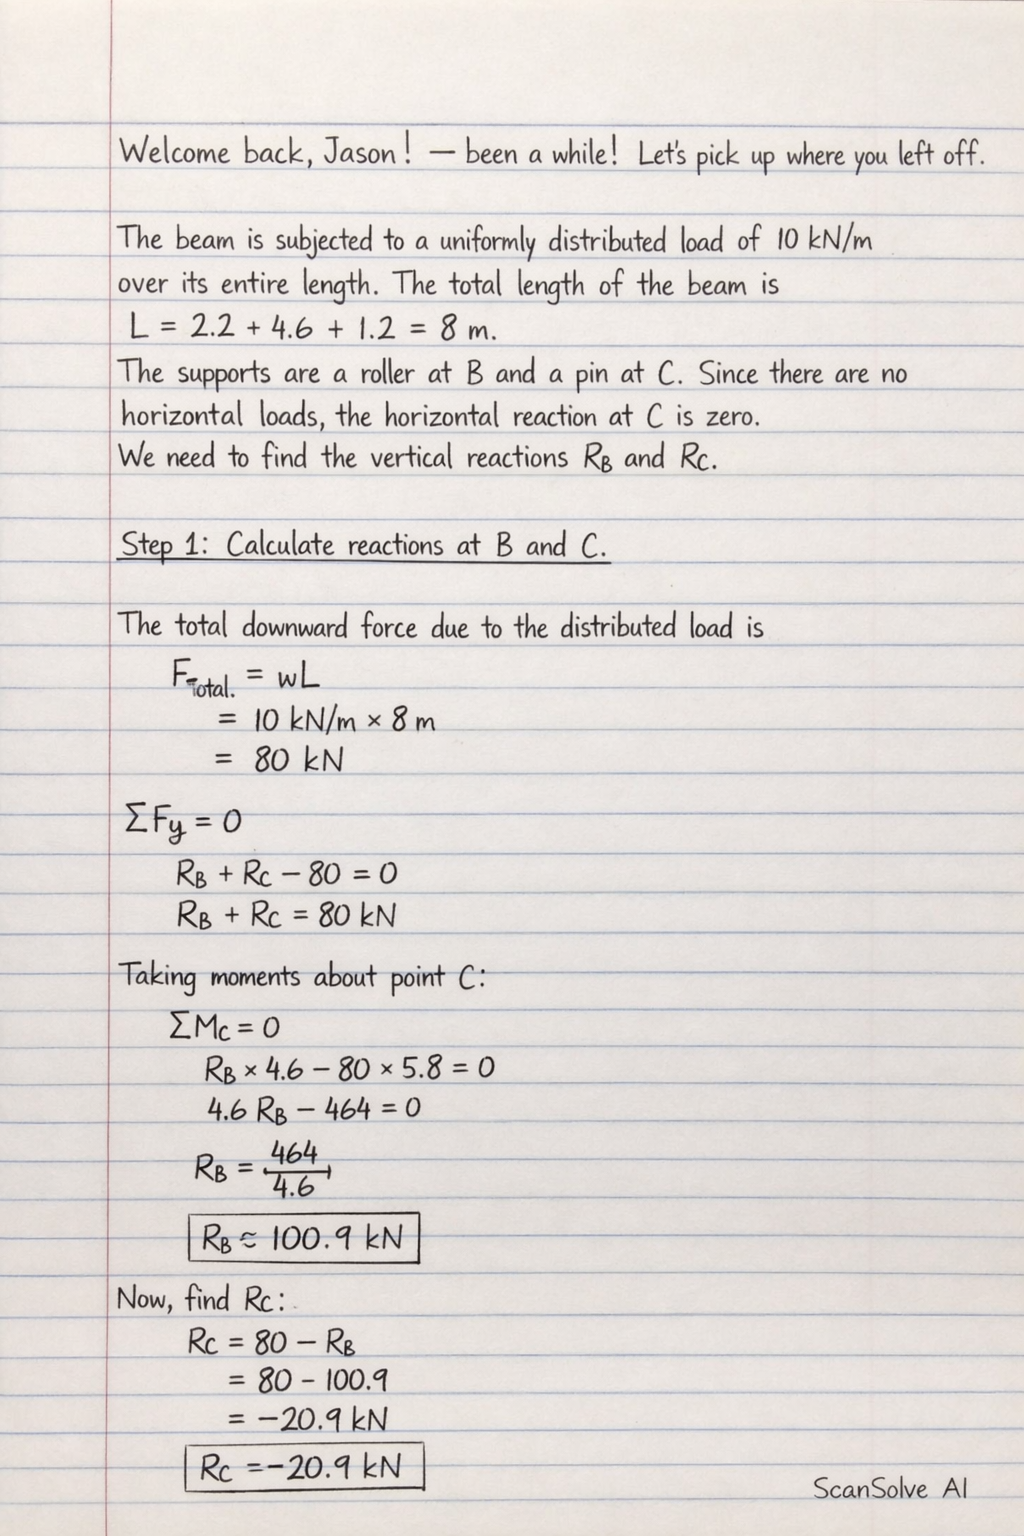 Welcome back, Jason! — been a while! Let's pick up where you left off.
The beam is subjected to a uniformly distributed load of 10 kN/m
over its entire length. The total length of the beam is
L = 2.2 + 4.6 + 1.2 = 8 m.
The supports are a roller at B and a pin at C. Since there are no
horizontal loads, the horizontal reaction at C is zero.
We need to find the vertical reactions RB and RC.
Step 1: Calculate reactions at B and C.
The total downward force due to the distributed load is
FTotal. = wL
= 10 kN/m × 8 m
= 80 kN
ΣFy = 0
RB + RC − 80 = 0
RB + RC = 80 kN
Taking moments about point C:
ΣMC = 0
RB × 4.6 − 80 × 5.8 = 0
4.6 RB − 464 = 0
RB = 464/4.6
RB ≈ 100.9 kN
Now, find RC:
RC = 80 − RB
= 80 − 100.9
= −20.9 kN
RC = −20.9 kN
ScanSolve AI